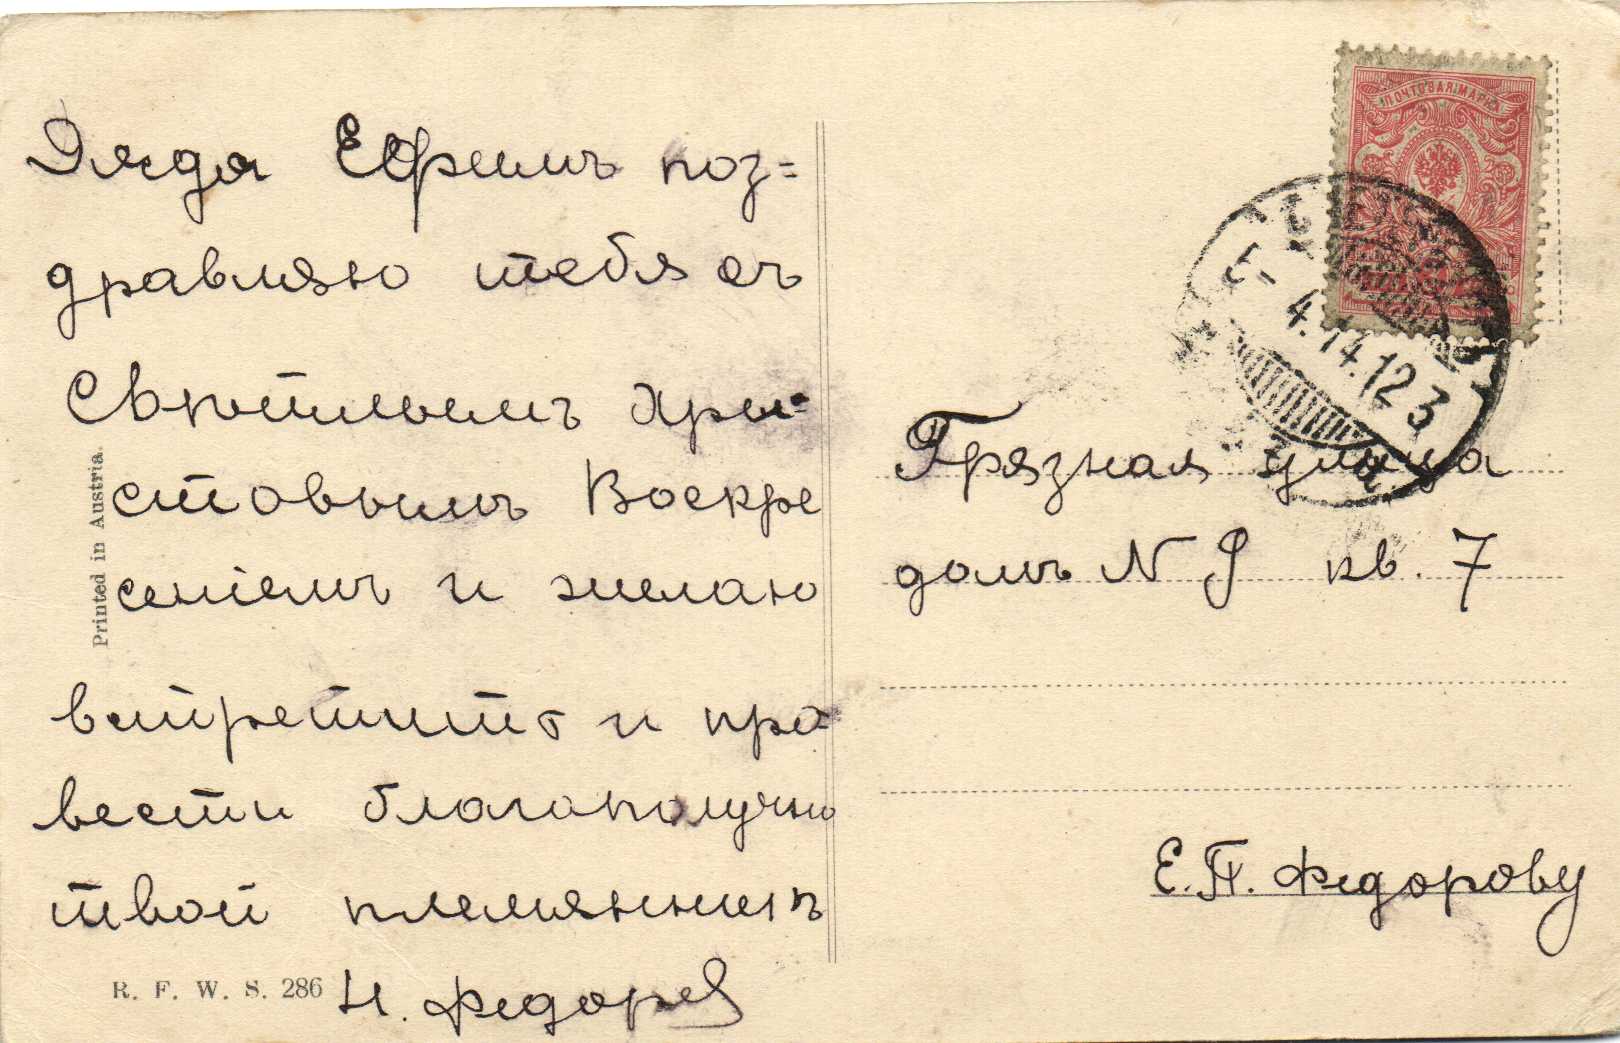 Дядя Ефремъ поз=
дравляю тебя съ
Свѣтлымъ Хри=
стовымъ Воскре
сеніемъ и желаю
встретить и про=
вести благополучно
твой племянникъ
Н. Федоров
Printed in Austria.
R. F. W. S. 286
ПОЧТОВАЯ МАРКА
5-4.14.12 3
Грязная улица
домъ N 9 кв. 7
Е. П. Федорову